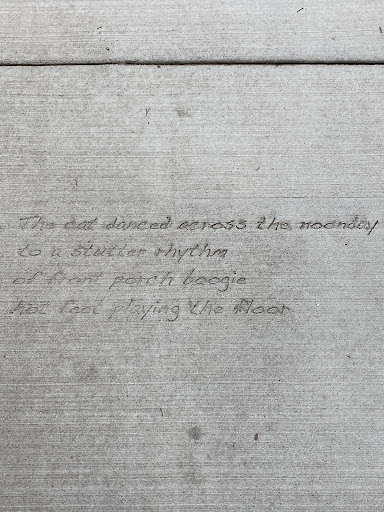 The cat danced across the noonday
to a stutter rhythm
of front porch boogie
hot feet playing the floor